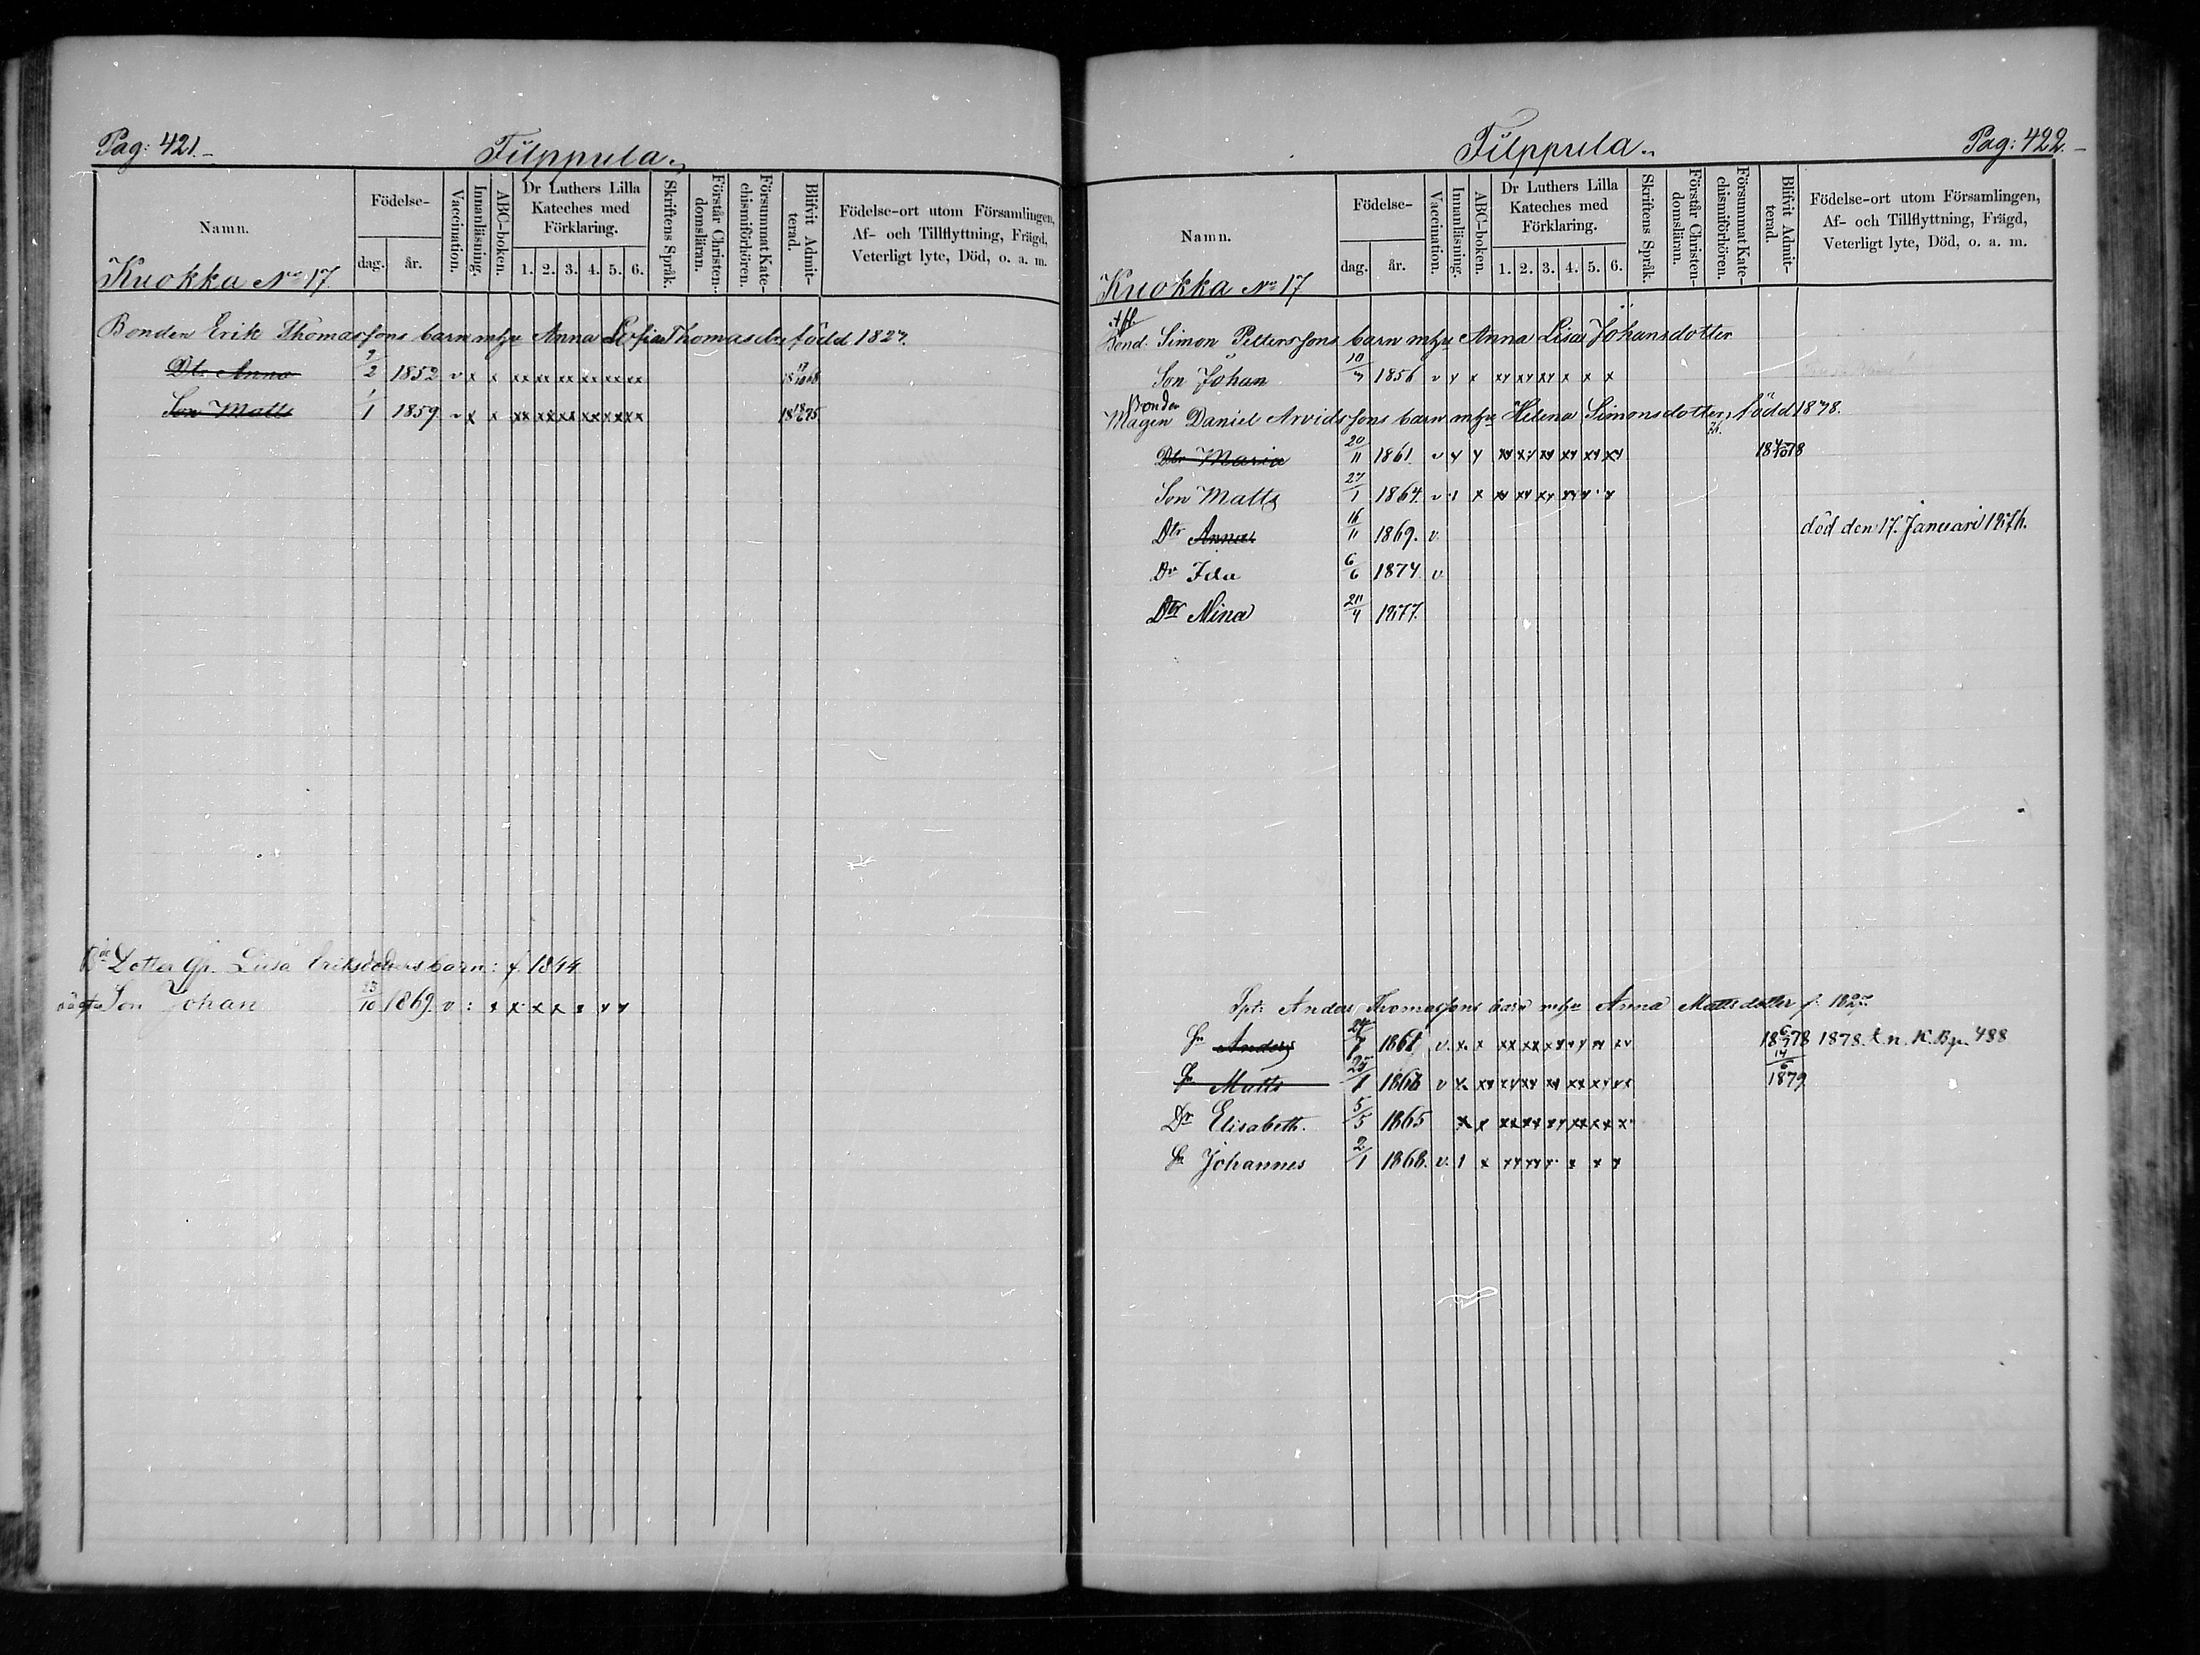 Pag: 421.
Filppula.
Namn.
Födelse-
dag.
år.
Vaccination.
Innanläsning.
ABC-boken.
Dr Luthers Lilla
Kateches med
Förklaring.
1. 2. 3. 4. 5. 6.
Skriftens Språk.
Förstår Christen-
domsläran.
Försummat Kate-
chismiförhören.
Blifvit Admit-
terad.
Födelse-ort utom Församlingen,
Af- och Tillflyttning, Frägd,
Veterligt lyte, Död, o. a. m.
Kuokka No 17
Bonden Erik Thomassons barn mhu Anna Thomasdr född 1827.
Dtr Anna 2 1852 v x x xx xx xx xx xx xx
Son Matts 1/1 1859 v x x xx xx xx xx xx xx 75
Dotter Lisa Eriksdotters barn: f. 1844
Son Johan 23/10 1869. v
Pag: 422.
Filppula.
Namn.
Födelse-
dag.
år.
Vaccination.
Innanläsning.
ABC-boken.
Dr Luthers Lilla
Kateches med
Förklaring.
1. 2. 3. 4. 5. 6.
Skriftens Språk.
Förstår Christen-
domsläran.
Försummat Kate-
chismiförhören.
Blifvit Admit-
terad.
Födelse-ort utom Församlingen,
Af- och Tillflyttning, Frägd,
Veterligt lyte, Död, o. a. m.
Kuokka No 17
Bond. Simon Pettersons barn mhu Anna Lisa Johansdotter
Son Johan 10 1856 v
Bonden
Mågen Daniel Arvidssons barn mhu Helena Simonsdotter, född 1838.
Dtr Maria 20/11 1861. v
Son Matts 27/1 1864. v
Dtr Anna 16/11 1869. v död den 17. Januari 1876.
Dr Ida 6/6 1874 v
Dtr Mina 1877.
Anders Thomassons barn mhu Anna Mattsdotter f.
Sn Anders 1861 v. 1878 K. B. 488
Sn Matts v 1879
Dr Elisabeth. 5/5 1865
Sn Johannes 2/1 1868. v.